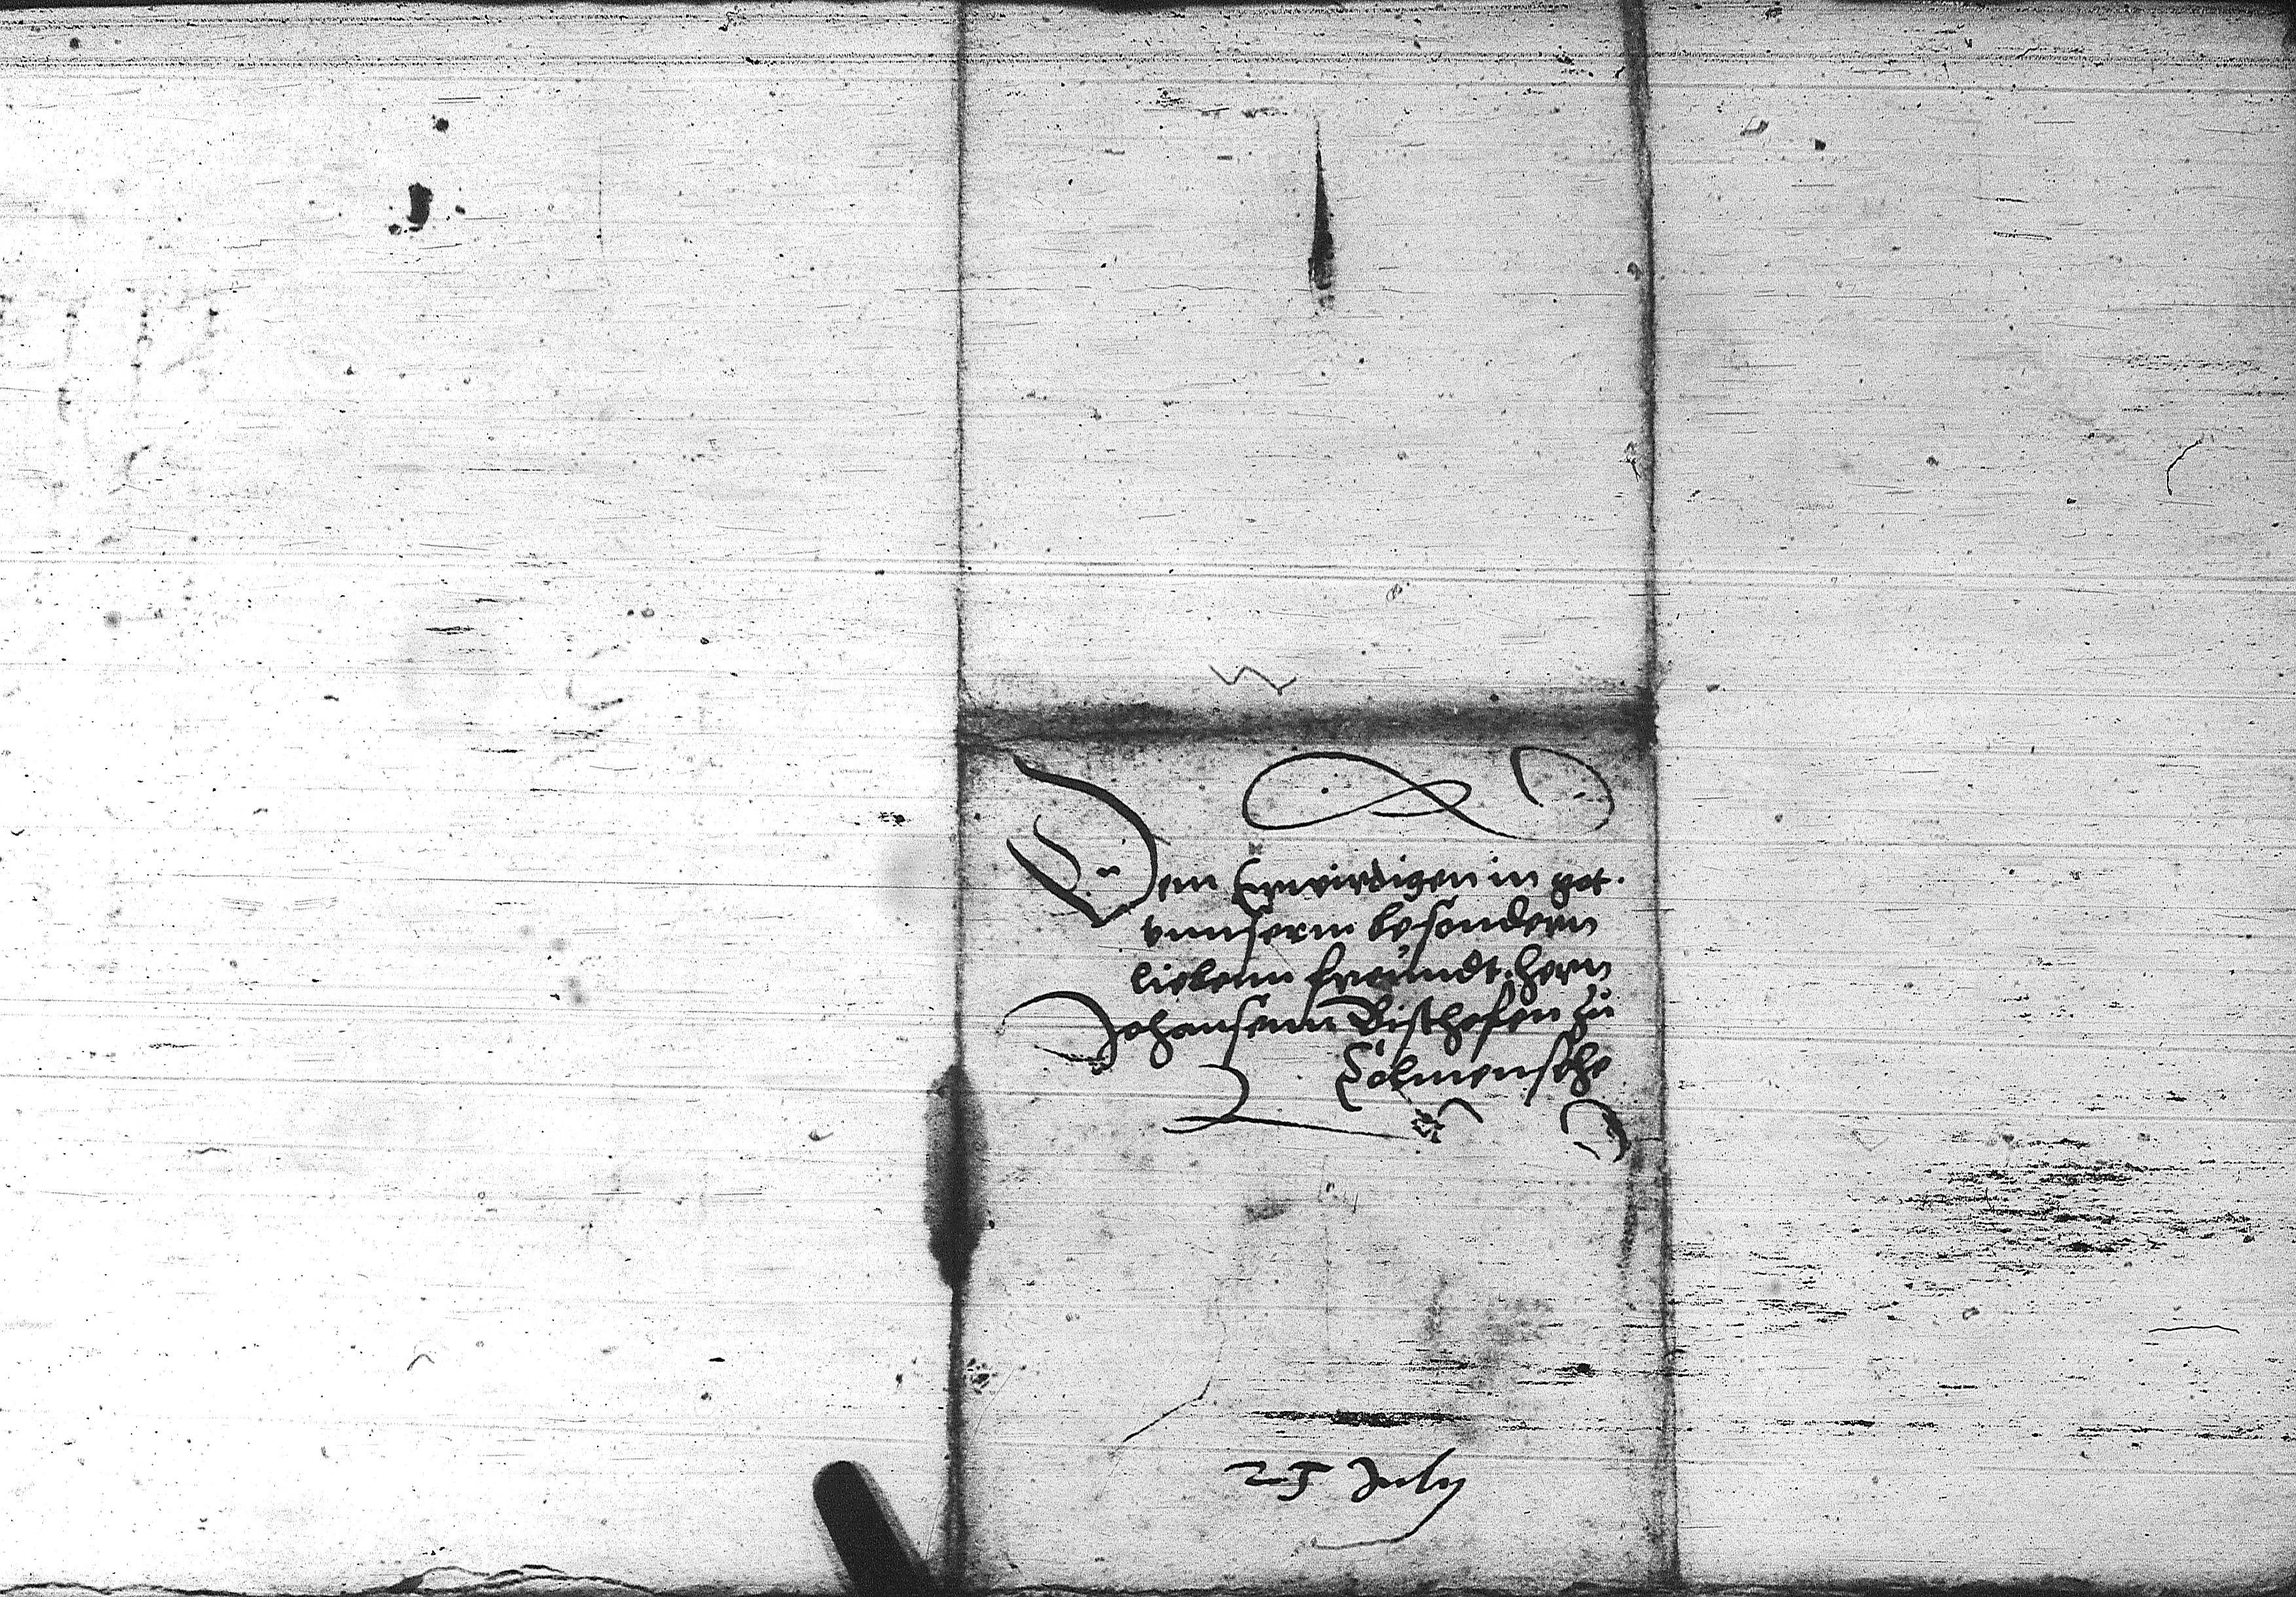 Dem Erwirdigen in got.
vnnserm besondern
liebenn freundt. hern
Johansenn Bischofen zu
Colmenschee
25 July